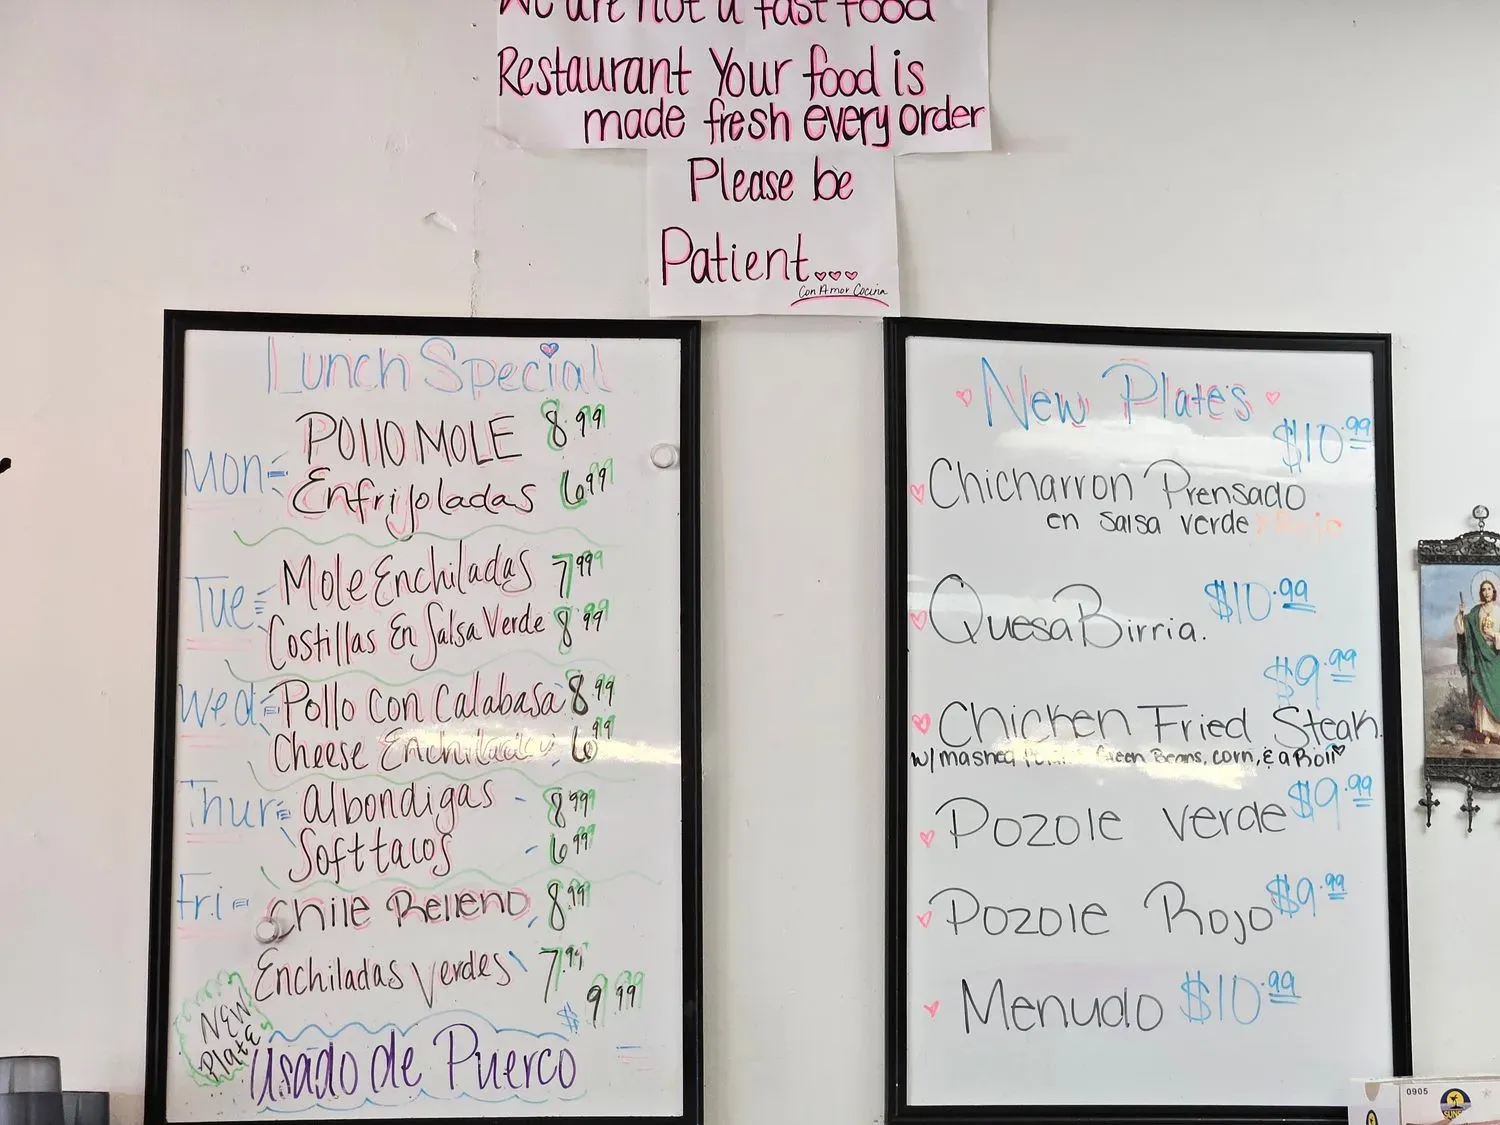 We are not a fast food
Restaurant Your food is
made fresh every order
Please be
Patient...
Con Amor Cocina
Lunch Special
Mon= Pollo MOLE 8.99
Enfrijoladas 6.99
Tue= Mole Enchiladas 7.99
Costillas En Salsa Verde 8.99
Wed= Pollo con Calabasa 8.99
Cheese Enchiladas 6.99
Thur= Albondigas - 8.99
Soft tacos - 6.99
Fri= Chile Relleno 8.99
Enchiladas Verdes 7.99
NEW Plate
$9.99
Usado de Puerco
New Plates
$10.99
Chicharron Prensado
en salsa verde y Rojo
QuesaBirria. $10.99
$9.99
Chicken Fried Steak
w/ mashed Green Beans, corn, & a Roll
Pozole verde $9.99
Pozole Rojo $9.99
Menudo $10.99
0905
SUNS